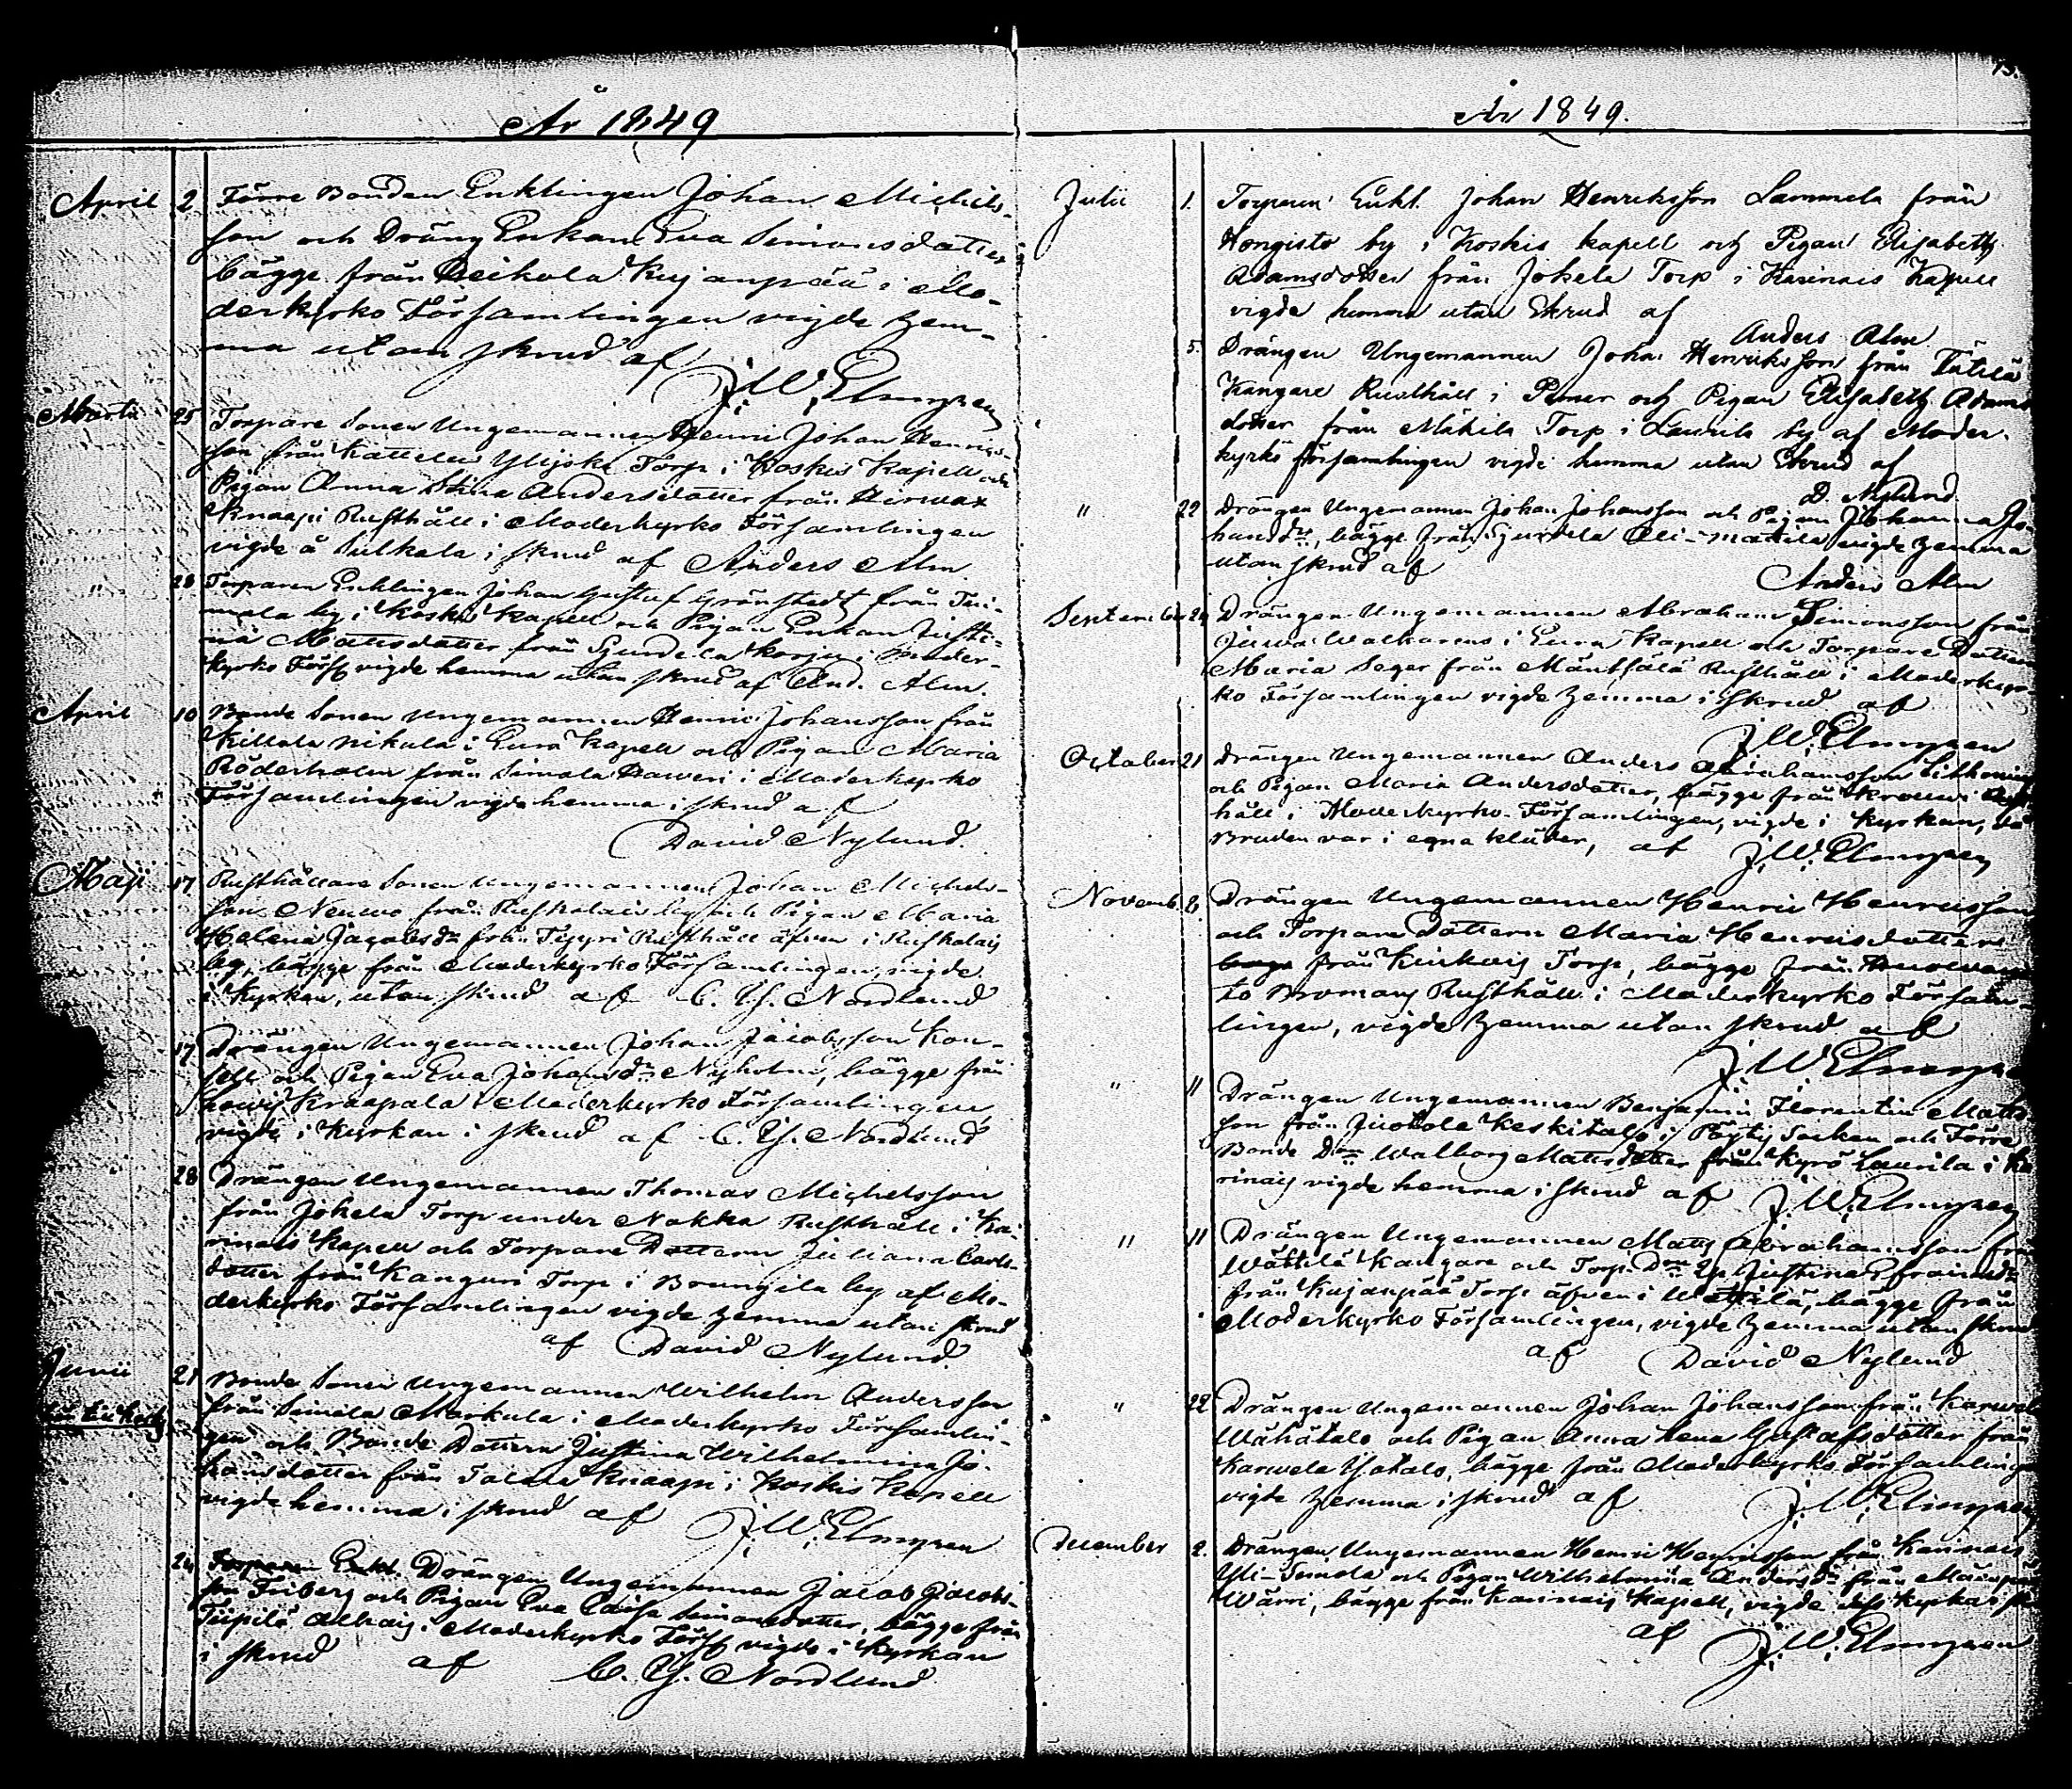 År 1849
April 2 Förre Bonden Enklingen Johan Michels-
son och Dräng Enkan Eva Simonsdotter
bägge från Kujanpää i Mo-
derkyrko Församlingen vigde hem-
ma utan skrud af
J. W. Elmgren
Martii 25 Torpare Sonen Ungemannen Henric Johan Henrics-
son från Kattelus Torp i Koskis Kapell och
Pigan Anna Stina Andersdotter från
Knaapi Rusthåll i Moderkyrko Församlingen
vigde å Sulkala i skrud af Anders Alm
" 28 Torparen Enklingen Johan Gustaf Grönstedt från
by i Koskis Kapell och Pigan Enkan Justi-
na Mattsdotter från i Moder-
kyrko Förs. vigde hemma utan skrud af And. Alm.
April 10 Bonde Sonen Ungemannen Henric Johansson från
Nikula i Eura Kapell och Pigan Maria
Röderholm från Simola i Moderkyrko
Församlingen vigde hemma i skrud af
David Nylund.
Maji 17 Rusthållare Sonen Ungemannen Johan Michels-
son från by och Pigan Maria
Helena Jacobsdr från Rusthåll äfven i
by, bägge från Moderkyrko Församlingen, vigde
i Kyrkan, utan skrud af Nordlund
17 Drängen Ungemannen Johan Jacobsson Kon-
sell och Pigan Eva Johansdr Nyholm, bägge från
Kraapala i Moderkyrko Församlingen,
vigde i Kyrkan i skrud af Nordlund
28 Drängen Ungemannen Thomas Michelsson
från Jokela Torp under Nokka Rusthåll i Ka-
rinais Kapell och Torpare Dottern Juliana Carls-
dotter från Torp i by af Mo-
derkyrko Församlingen vigde hemma utan skrud
af David Nylund
Junii 21 Bonde Sonen Ungemannen Wilhelm Andersson
från Simala Markula i Moderkyrko Församlin-
gen och Bonde Dottern Justina Wilhelmina Jo-
hansdotter från Knaapi i Koskis Kapell
vigde hemma i skrud af
J. W. Elmgren
24 Torparen Enkl. Drängen Ungemannen Jacob Jacobs-
son Friberg och Pigan Eva Caisa Simonsdotter, bägge från
i Moderkyrko Förs. vigde i Kyrkan
i skrud af Nordlund
År 1849.
Julii 1. Torparen Enkl. Johan Henriksson Lammela från
Hongisto by i Koskis kapell och Pigan Elisabeth
Adamsdotter från Jokela Torp i Karinais Kapell
vigde hemma utan Skrud af
Anders Alm
5. Drängen Ungemannen Johan Henriksson från
Kangare Rusthåll i och Pigan Elisabeth Adams
dotter från Mäkilä Torp i Laurila by af Moder-
kyrko församlingen vigde hemma utan Skrud af
D. Nylund
" 22 Drängen Ungemannen Johan Johansson och Pigan Johanna Jo-
hansdr, bägge från vigde hemma
utan skrud af
Anders Alm
September 24 Drängen Ungemannen Abraham Simonsson från
i Eura Kapell och Torpare Dottern
Maria Seger från Mäntsälä Rusthåll i Moderkyr-
ko Församlingen vigde hemma i skrud af
J. W. Elmgren
October 21 Drängen Ungemannen Anders Abrahamsson
och Pigan Maria Andersdotter, bägge från
håll i Moderkyrko Församlingen, vigde i Kyrkan, då
Bruden var i egna kläder, af J. W. Elmgren
Novemb. 2. Drängen Ungemannen Henric Henricsson
och Torpare Dottern Maria Henricsdotter
från Torp, bägge från
to Bromans Rusthåll i Moderkyrko Försam-
lingen, vigde hemma utan skrud af
J. W. Elmgren
" 11 Drängen Ungemannen Benjamin Florentin Matts
son från Juotola Keskitalo i Pöytis Socken och Förre
Bonde Walborg Mattsdotter från Kyrö Laurila i Ka
rinais vigde hemma i skrud af J. W. Elmgren
" 11 Drängen Ungemannen Matts Abrahamsson från
Wättilä Kangare och Torp. Justina Efraimsdr
från Kujanpää Torp äfven i Wättilä, bägge från
Moderkyrko Församlingen, vigde hemma utan skrud
af David Nylund
" 22 Drängen Ungemannen Johan Johansson från
Wähätalo och Pigan Anna Lena Gustafsdotter från
Karwela Yotalo, bägge från Moderkyrko Församlingen
vigde hemma i skrud af J. W. Elmgren
December 2. Drängen Ungemannen Henric Henricsson från Karinais
och Pigan Wilhelmina Andersdr från
Wärri, bägge från Karinais Kapell, vigde Kyrka i
af J. W. Elmgren